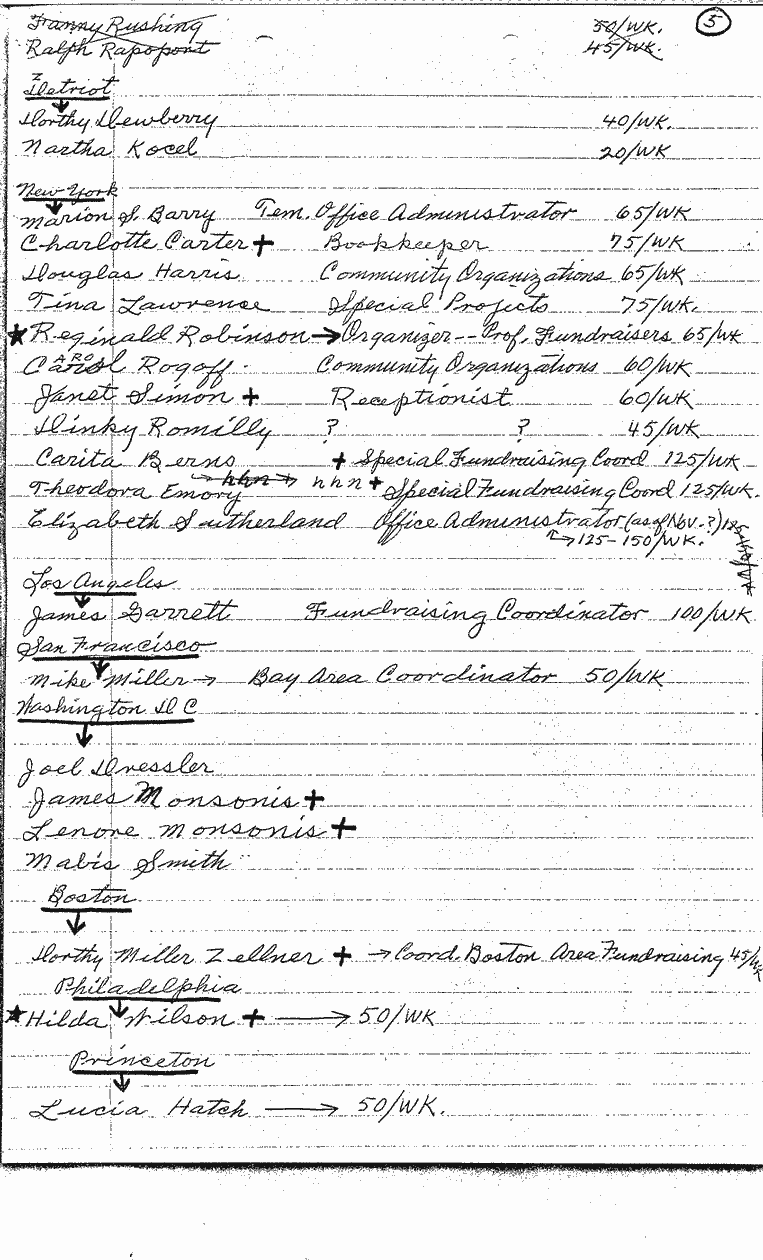 5
Franny Rushing 50/WK.
Ralph Rapoport 45/WK.
Detriot
Dorthy Dewberry 40/WK.
Martha Kocel 20/WK
New York
Marion S. Barry Tem. Office Administrator 65/WK
Charlotte Carter + Bookkeeper 75/WK
Douglas Harris Community Organizations 65/WK
Tina Lawrence Special Projects 75/WK.
★ Reginald Robinson → Organizer -- Prof. Fundraisers 65/WK
Carol Rogoff Community Organizations 60/WK
Janet Simon + Receptionist 60/WK
Dinky Romilly ? ? 45/WK
Carita Berns + Special Fundraising Coord 125/WK
Theodora Emory hhn → hhn + Special Fundraising Coord 125/WK.
Elizabeth Sutherland Office Administrator (as of Nov. ?)
→ 125-150/WK.
Los Angeles
James Garrett Fundraising Coordinator 100/WK
San Francisco
Mike Miller → Bay Area Coordinator 50/WK
Washington D C
Joel Dressler
James Monsonis +
Lenore Monsonis +
Mabis Smith
Boston
Dorthy Miller Zellner + → Coord. Boston Area Fundraising 45/WK
Philadelphia
★ Hilda Wilson + → 50/WK
Princeton
Lucia Hatch → 50/WK.